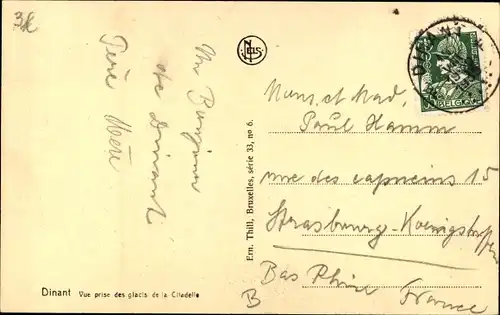 3k
Un Bonjour
de Dinant
Père Mère
Dinant Vue prise des glacis de la Citadelle
Ern. Thill, Bruxelles, série 33, no 6.
NELS
DINANT
BELGIE
Mons. et Mad.
Paul Hamm
rue des capucins 15
Strasbourg-Koenigshoffen
Bas Rhin
France
B